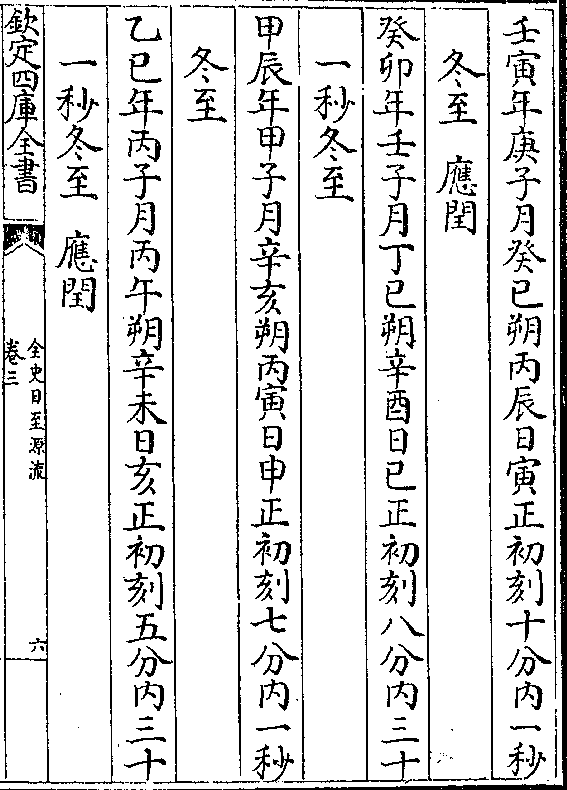 壬寅年庚子月癸巳朔丙辰日寅正初刻十分内一秒
冬至　應閏
癸卯年壬子月丁巳朔辛酉日巳正初刻八分内三十
一秒冬至
甲辰年甲子月辛亥朔丙寅日申正初刻七分内一秒
冬至
乙巳年丙子月丙午朔辛未日亥正初刻五分内三十
一秒冬至　應閏
欽定四庫全書
全史日至源流
卷三
六